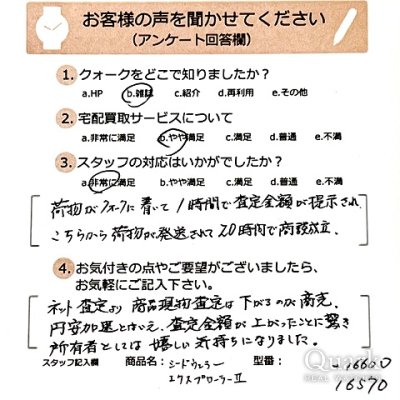 お客様の声を聞かせてください
（アンケート回答欄）
1. クォークをどこで知りましたか？
a.HP b.雑誌 c.紹介 d.再利用 e.その他
2. 宅配買取サービスについて
a.非常に満足 b.やや満足 c.満足 d.普通 e.不満
3. スタッフの対応はいかがでしたか？
a.非常に満足 b.やや満足 c.満足 d.普通 e.不満
荷物がクォークに着いて1時間で査定金額が提示され、
こちらから荷物が発送されて20時間で商談成立。
4. お気付きの点やご要望がございましたら、
お気軽にご記入下さい。
ネット査定より商品現物査定は下がるのが商売。
円安加速とはいえ、査定金額が上がったことに驚き
所有者としては嬉しい気持ちになりました。
スタッフ記入欄 商品名：シードゥエラー 型番： 16600
エクスプローラーⅡ 16570
Quark